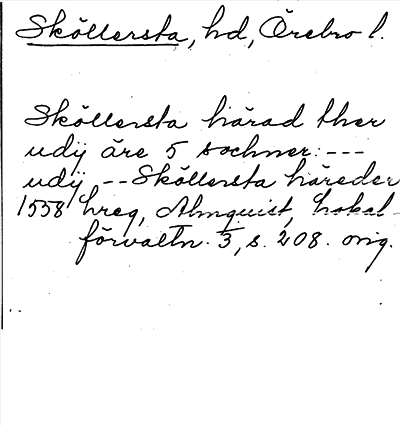 Sköllersta, hd, Örebro l.
Sköllersta härad ther
udij äre 5 sochner: ---
udij -- Sköllersta häreder
1558 hreg, Almquist, Lokal-
förvaltn. 3, s. 208. orig.